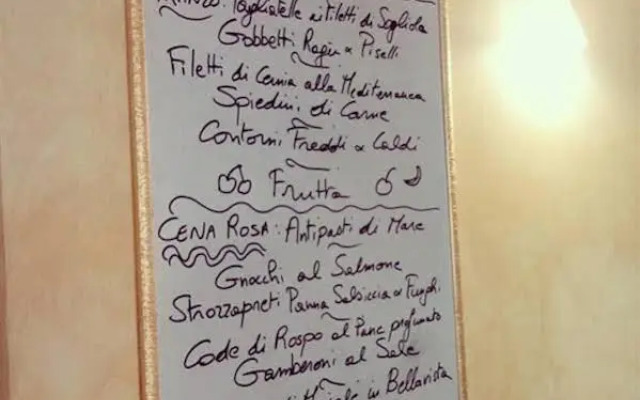 Tagliatelle ai Filetti di Sogliola
Gobbetti Ragù e Piselli
Filetti di Cernia alla Mediterranea
Spiedini di Carne
Contorni Freddi e Caldi
Frutta
CENA ROSA: Antipasti di Mare
Gnocchi al Salmone
Strozzapreti Panna Salsiccia e Funghi
Code di Rospo al Pane profumato
Gamberoni al Sale
in Bellavista